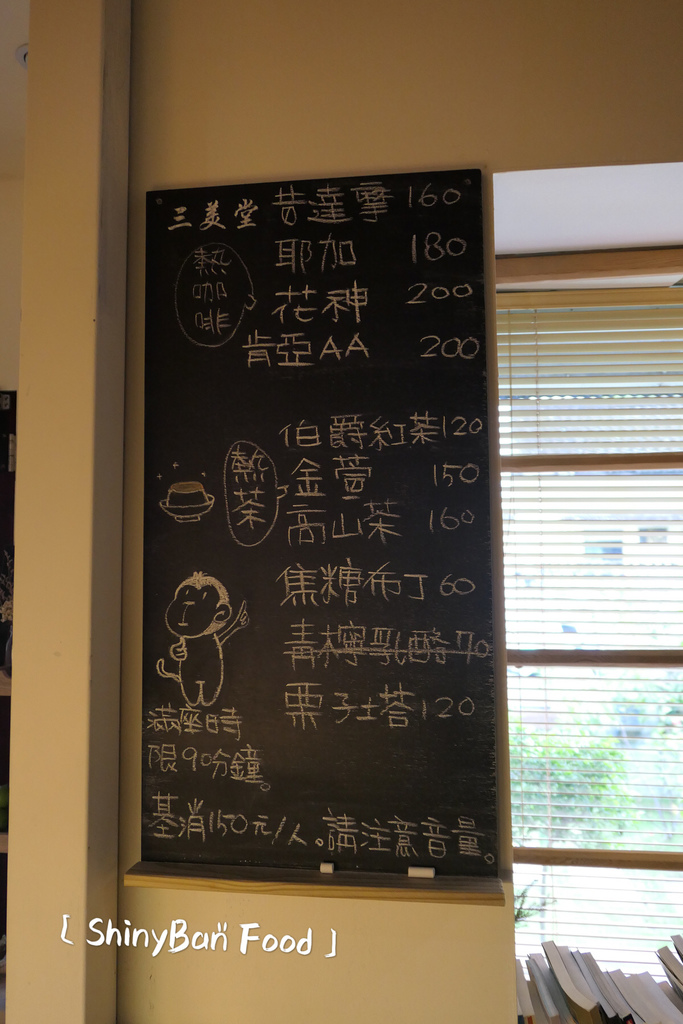 三美堂 昔達摩 160
熱咖啡
耶加 180
花神 200
肯亞AA 200
熱茶
伯爵紅茶120
金萱 150
高山茶 160
焦糖布丁60
青檸乳酪70
栗子塔120
滿座時
限90分鐘。
基消150元/人。請注意音量。
[ ShinyBan Food ]